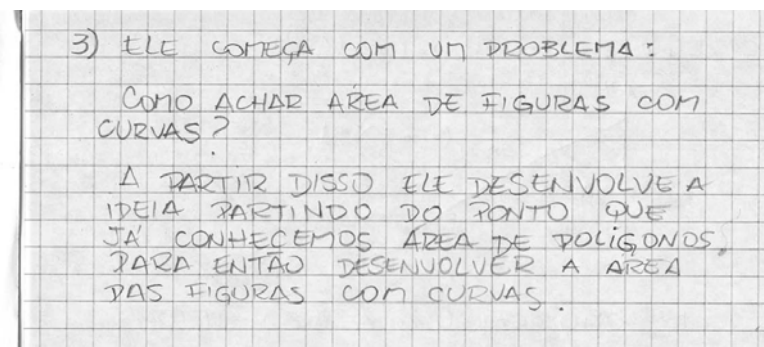 3) ELE COMEÇA COM UM PROBLEMA:
COMO ACHAR AREA DE FIGURAS COM
CURVAS?
A PARTIR DISSO ELE DESENVOLVE A
IDEIA PARTINDO DO PONTO QUE
JÁ CONHECEMOS AREA DE POLIGONOS,
PARA ENTÃO DESENVOLVER A AREA
DAS FIGURAS COM CURVAS.